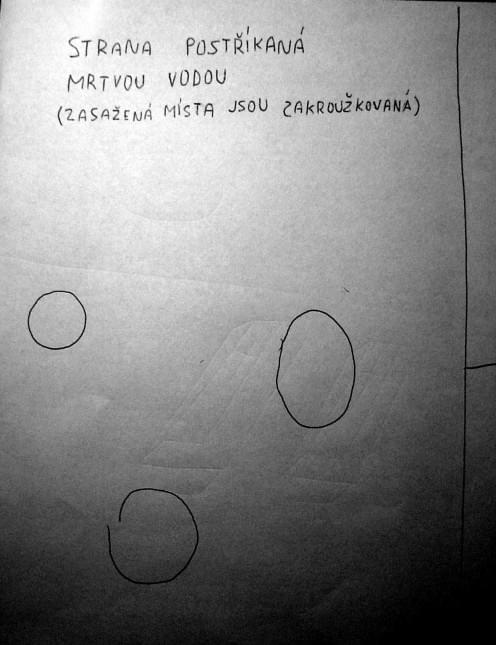 STRANA POSTŘÍKANÁ
MRTVOU VODOU
(ZASAŽENÁ MÍSTA JSOU ZAKROUŽKOVANÁ)